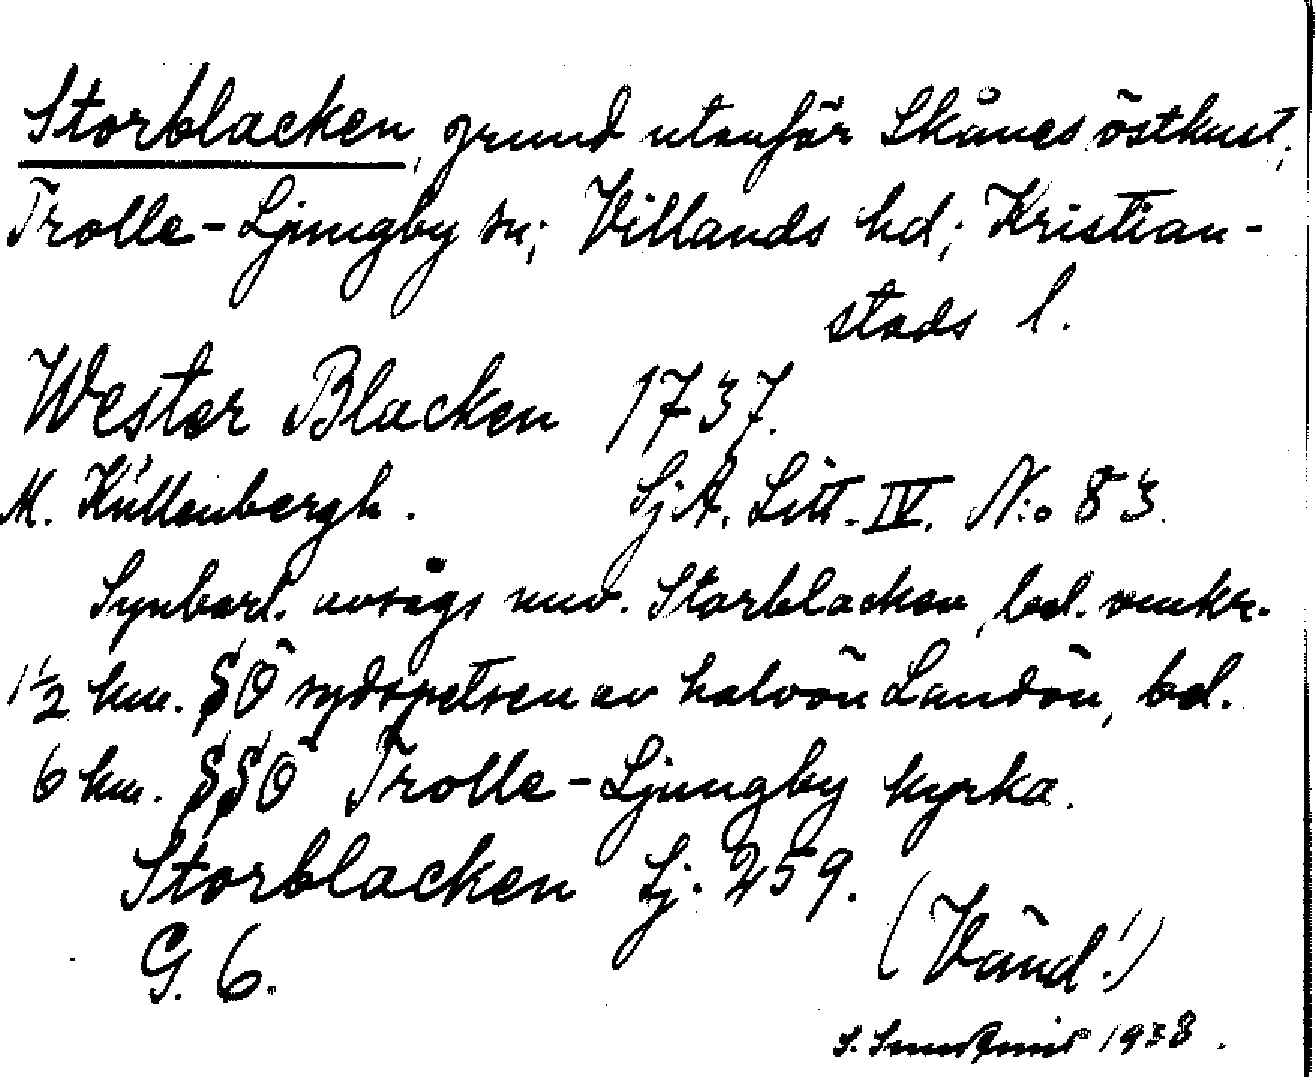 Storblacken, grund utanför Skånes östkust,
Trolle-Ljungby sn; Villands hd; Kristian-
stads l.
Wester Blacken 1737.
M. Küllenbergh. Sj.A. Litt. IV. N:o 83.
Synbarl. avsågs nuv. Storblacken, bel. omkr.
1½ km. SÖ sydspetsen av halvön Landön, bel.
6 km. SSÖ Trolle-Ljungby kyrka.
Storblacken Sj. 259.
G. 6. (Vänd!)
S. 1938.